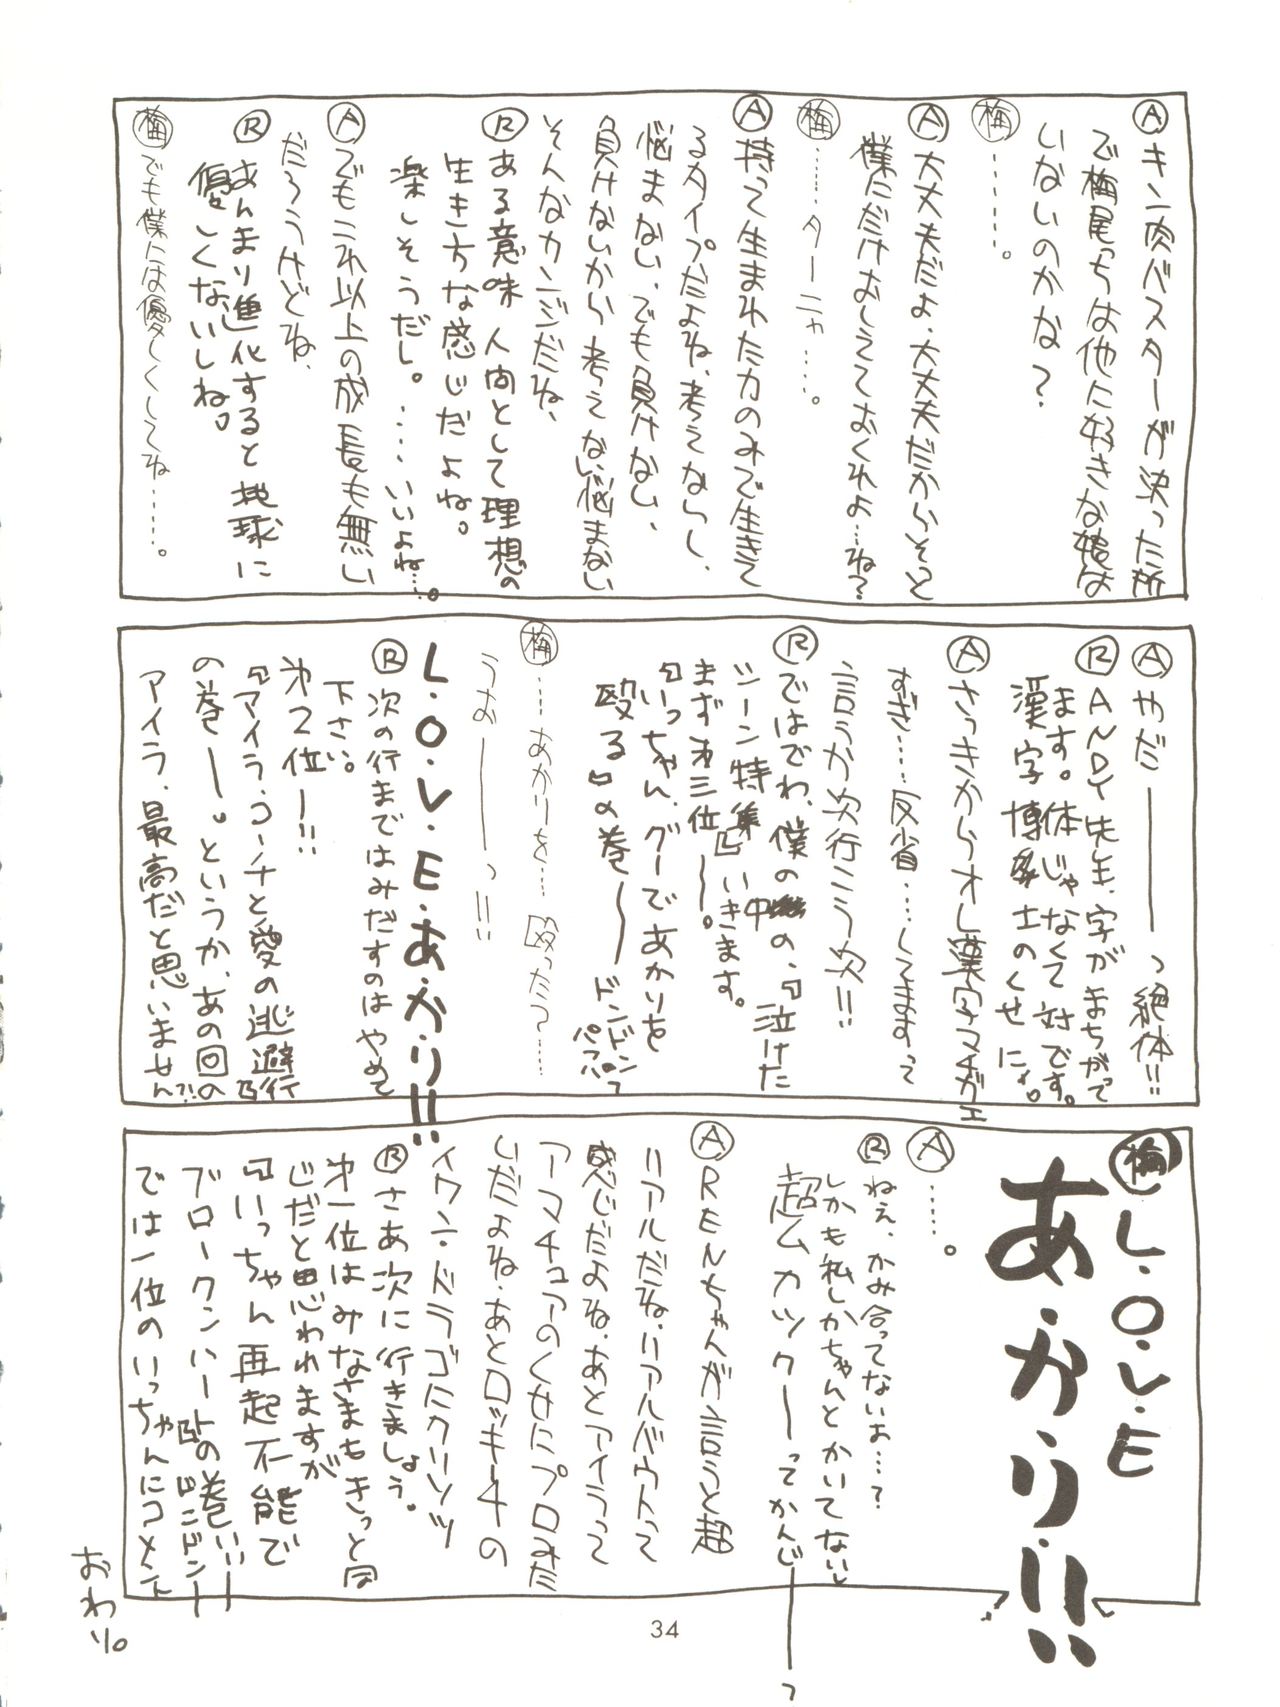 Ⓐキン肉バスターが決った所
で梅尾っちは他に好きな娘は
いないのかな？
㊥梅……。
Ⓐ大丈夫だよ、大丈夫だからそっと
僕にだけおしえておくれよ…ね？
梅………ターニャ……。
Ⓐ持って生まれた力のみで生きて
るタイプだよね、考えないし、
悩まない、でも負けない、
負けないから考えない悩まない
そんなカンジだね、
Ⓡある意味人間として理想の
生き方な感じだよね。
楽しそうだし。……いいよね…。
Ⓐでもこれ以上の成長も無い
だろうけどね、
Ⓡあんまり進化すると地球に
優しくないしね。
梅でも僕には優しくしてね……。
Ⓐやだ――――っ絶体!!
ⓇANDY先生、字がまちがって
ます。体じゃなくて対です。
漢字博士のくせに。
Ⓐさっきからオレ漢字マチガエ
すぎ……反省……してますって
言うか次行こう次!!
Ⓡではでわ、僕の中の、『泣けた
シーン特集』いきます。
まずオ三位――。
『いっちゃん、グーであかりを
殴る』の巻――ドンドンパフパフっ
梅……あかりを……殴った？……
うお―――――っ!!
L・O・V・E・あ・か・り!!
Ⓡ次の行まではみだすのはやめて
下さい。
オ2位―!!
『アイラ、コーチと愛の逃避行』
の巻―。というか、あの回の
アイラ、最高だと思いません?!
梅L・O・V・E
あ・か・り!!
Ⓐ……。
Ⓡねぇ、かみ合ってないよ…？
しかも私しかちゃんとかいてないし
超ムカツク――ってかんじ――っ
ⒶRENちゃんが言うと超
リアルだね、リアルバウトって
感じだよね、あとアイラって
アマチュアのくせにプロみた
いだよね、あとロッキー4の
イワン・ドラゴにクリソツ
Ⓡさあ次に行きましょう。
オ一位はみなさまもきっと同
じだと思われますが
『いっちゃん再起不能で
ブロークンハート』の巻い!!ドンドン――
では一位のいっちゃんにコメント
おわり。
34